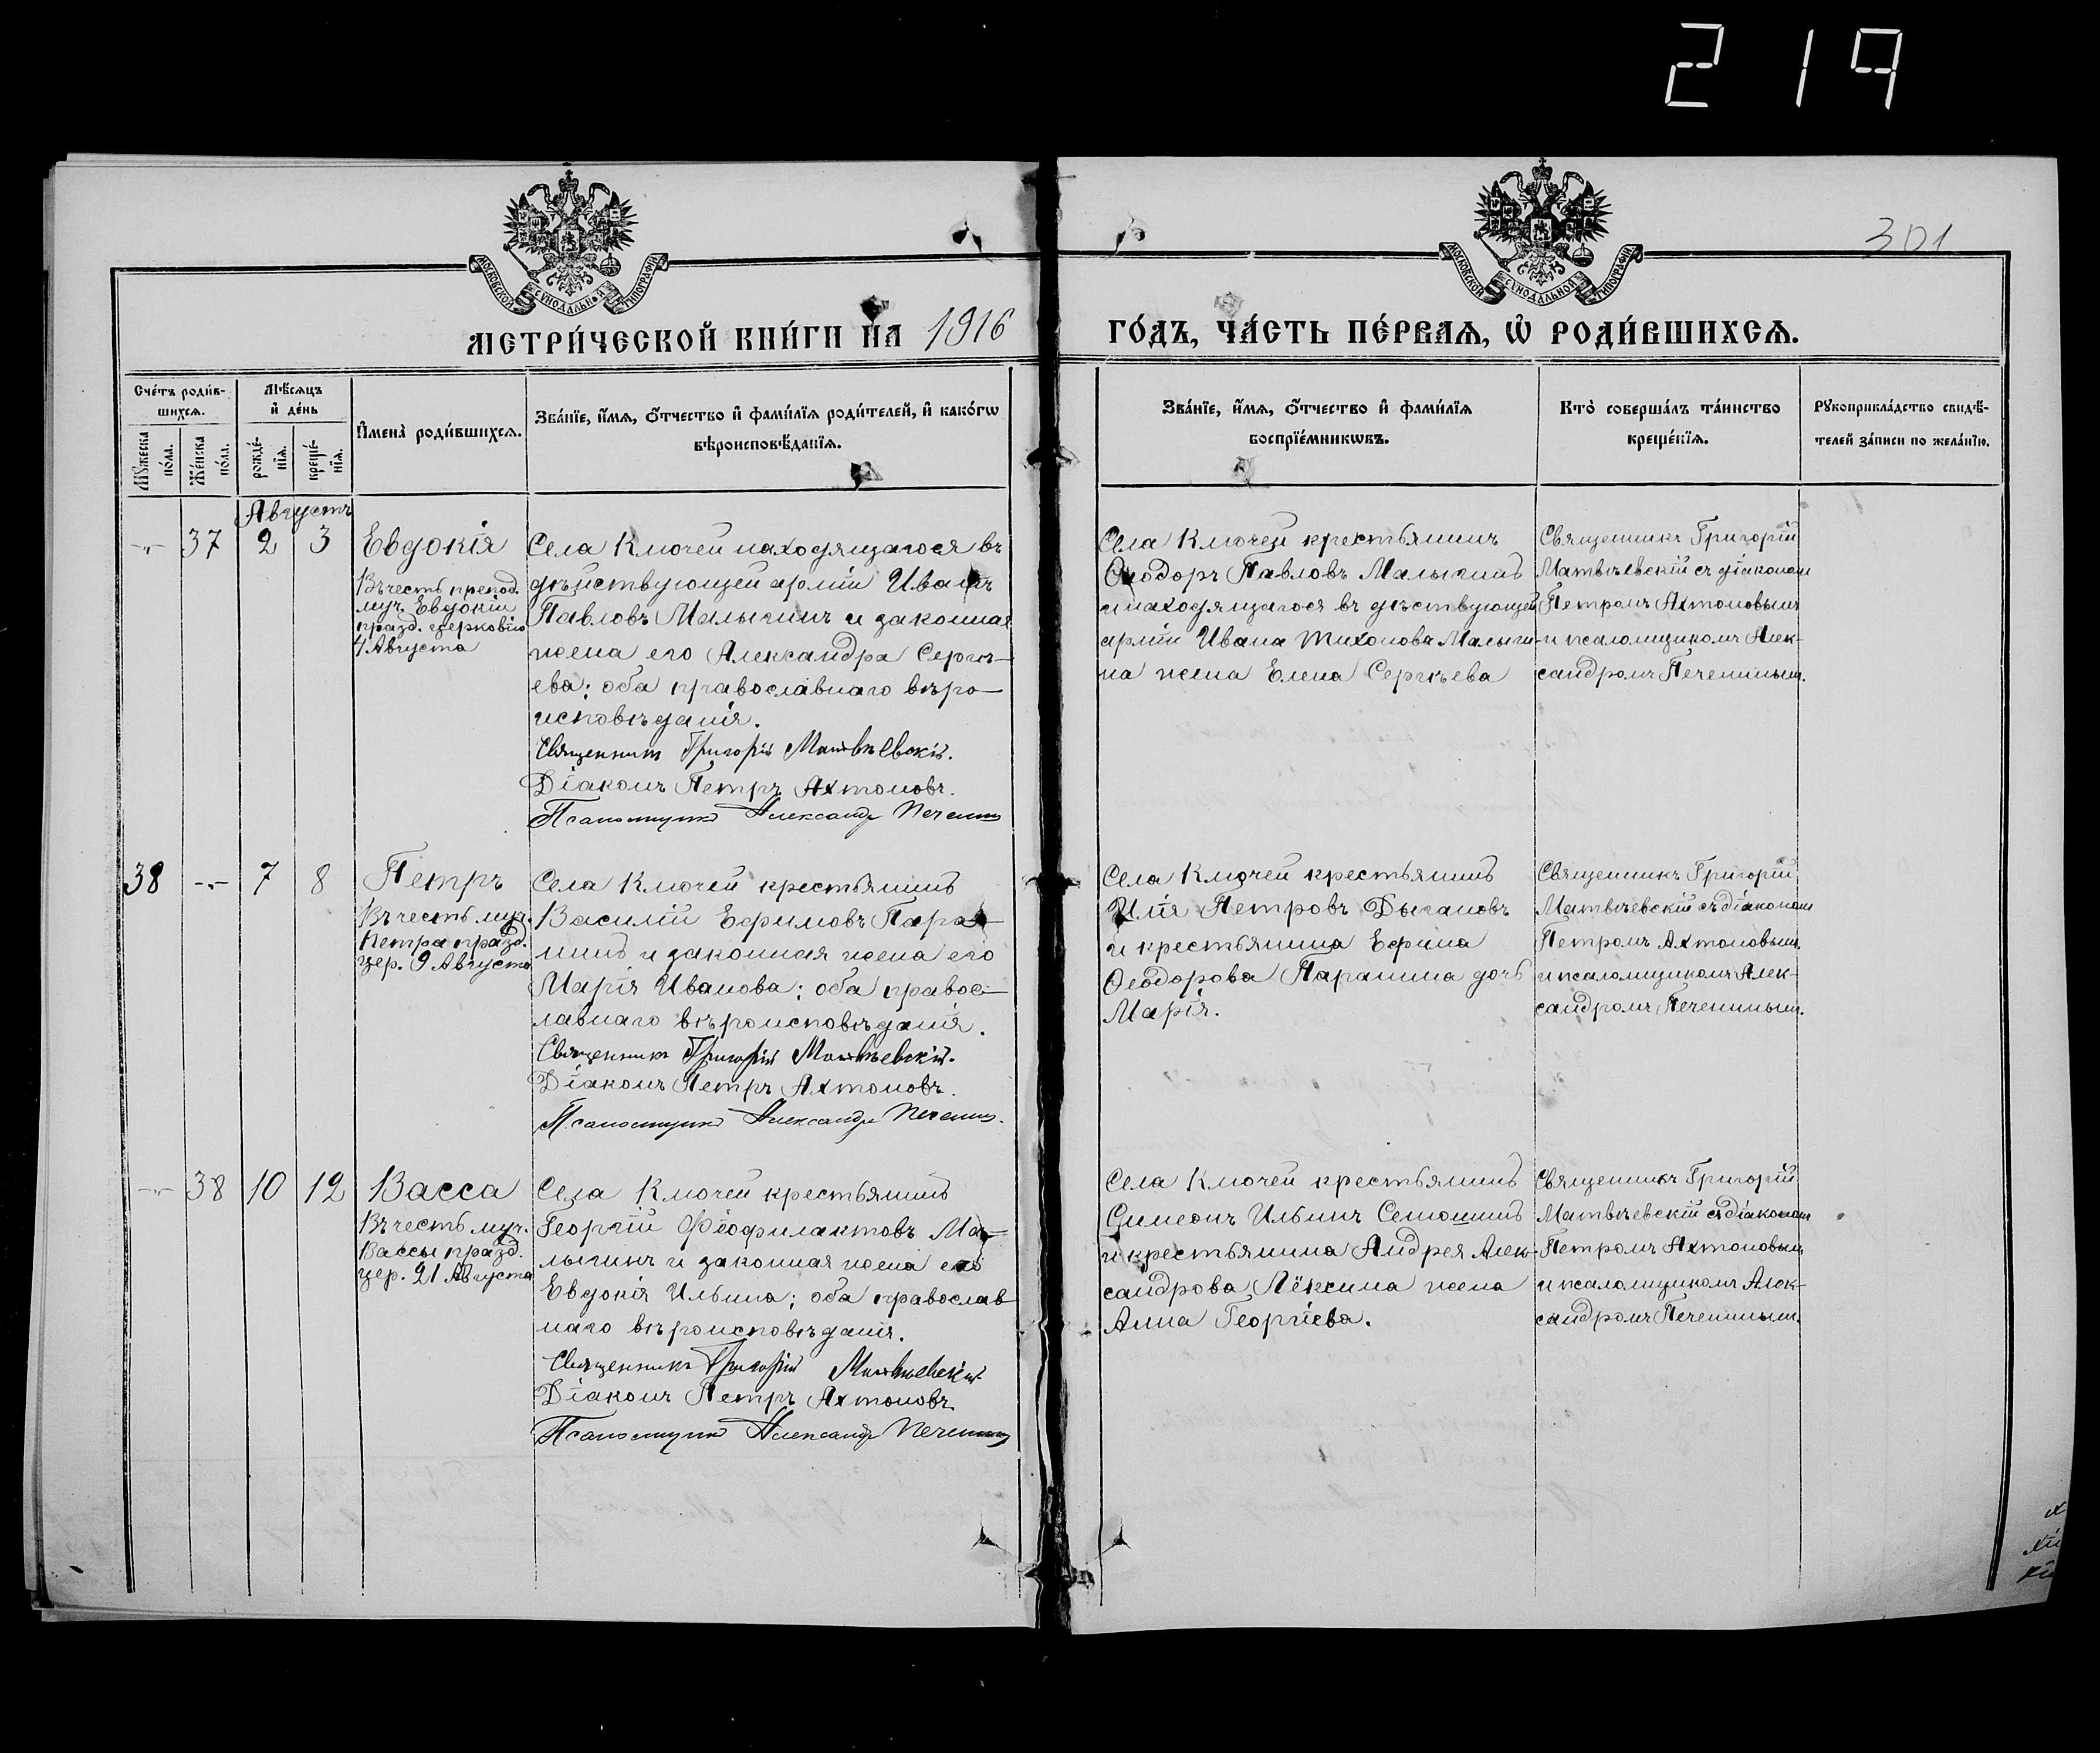 219
301
МОСКОВСКОЙ СѴНОДАЛЬНОЙ ТИПОГРАФІИ
МОСКОВСКОЙ СѴНОДАЛЬНОЙ ТИПОГРАФІИ
МЕТРИ́ЧЕСКОЙ КНИ́ГИ НА 1916 ГО́ДЪ, ЧА́СТЬ ПЕ́РВАѦ, Ѿ РОДИ́ВШИХСѦ.
Сче́тъ роди́в-
шихсѧ.
Мꙋ́жеска по́ла.
Же́нска по́ла.
Мѣ́сѧцъ
и҆ де́нь
рожде́-
нїѧ.
креще́-
нїѧ.
И҆мена̀ роди́вшихсѧ.
Зва́нїе, и҆́мѧ, ѻ҆́тчество и҆ фами́лїѧ роди́телей, и҆ како́гѡ
вѣроисповѣ́данїѧ.
Зва́нїе, и҆́мѧ, ѻ҆́тчество и҆ фами́лїѧ
воспрїе́мникѡвъ.
Кто̀ соверша́лъ та́инство
креще́нїѧ.
Рꙋкоприкла́дство свидѣ́-
телей за́писи по жела́нїю.
Августъ
-"- 37 2 3
Евдокія
Въ честь препод.
муч. Евдокіи
празд. церковію
4 Августа
Села Ключей находящагося въ
дѣйствующей арміи Иванъ
Павловъ Малыгинъ и законная
жена его Александра Сергѣ-
ева; оба православнаго вѣро-
исповѣданія.
Священникъ Григорій Матвѣевскій.
Діаконъ Петръ Ахтоновъ.
Псаломщикъ Александръ Печенинъ
Села Ключей крестьянинъ
Ѳеодоръ Павловъ Малыгинъ
и находящагося въ дѣствующей
арміи Ивана Тихонова Малыги-
на жена Елена Сергѣева
Священникъ Григорій
Матвѣевскій съ діакономъ
Петромъ Ахтоновымъ
и псаломщикомъ Алек-
сандромъ Печенинымъ.
38 -"- 7 8
Петръ
Въ честь муч.
Петра празд.
цер. 9 Августа
Села Ключей крестьянинъ
Василій Ефимовъ Пара-
нинъ и законная жена его
Марія Иванова; оба правос-
лавнаго вѣроисповѣданія.
Священникъ Григорій Матвѣевскій.
Діаконъ Петръ Ахтоновъ.
Псаломщикъ Александръ Печенинъ.
Села Ключей крестьянинъ
Илія Петровъ Дыгановъ
и крестьянина Ефима
Ѳеодорова Паранина дочь
Марія.
Священникъ Григорій
Матвѣевскій съ діакономъ
Петромъ Ахтоновымъ
и псаломщикомъ Алек-
сандромъ Печенинымъ.
-"- 38 10 12
Васса
Въ честь муч.
Вассы празд.
цер. 21 Августа
Села Ключей крестьянинъ
Георгій Феофилактовъ Ма-
лыгинъ и законная жена его
Евдокія Ильина; оба православ
наго вѣроисповѣданія.
Священникъ Григорій Матвѣевскій
Діаконъ Петръ Ахтоновъ.
Псаломщикъ Александръ Печенинъ
Села Ключей крестьянинъ
Симеонъ Ильинъ Сенюшинъ
и крестьянина Андрея Алек-
сандрова Лёксина жена
Анна Георгіева.
Священникъ Григорій
Матвѣевскій съ діакономъ
Петромъ Ахтоновымъ
и псаломщикомъ Алек-
сандромъ Печенинымъ.